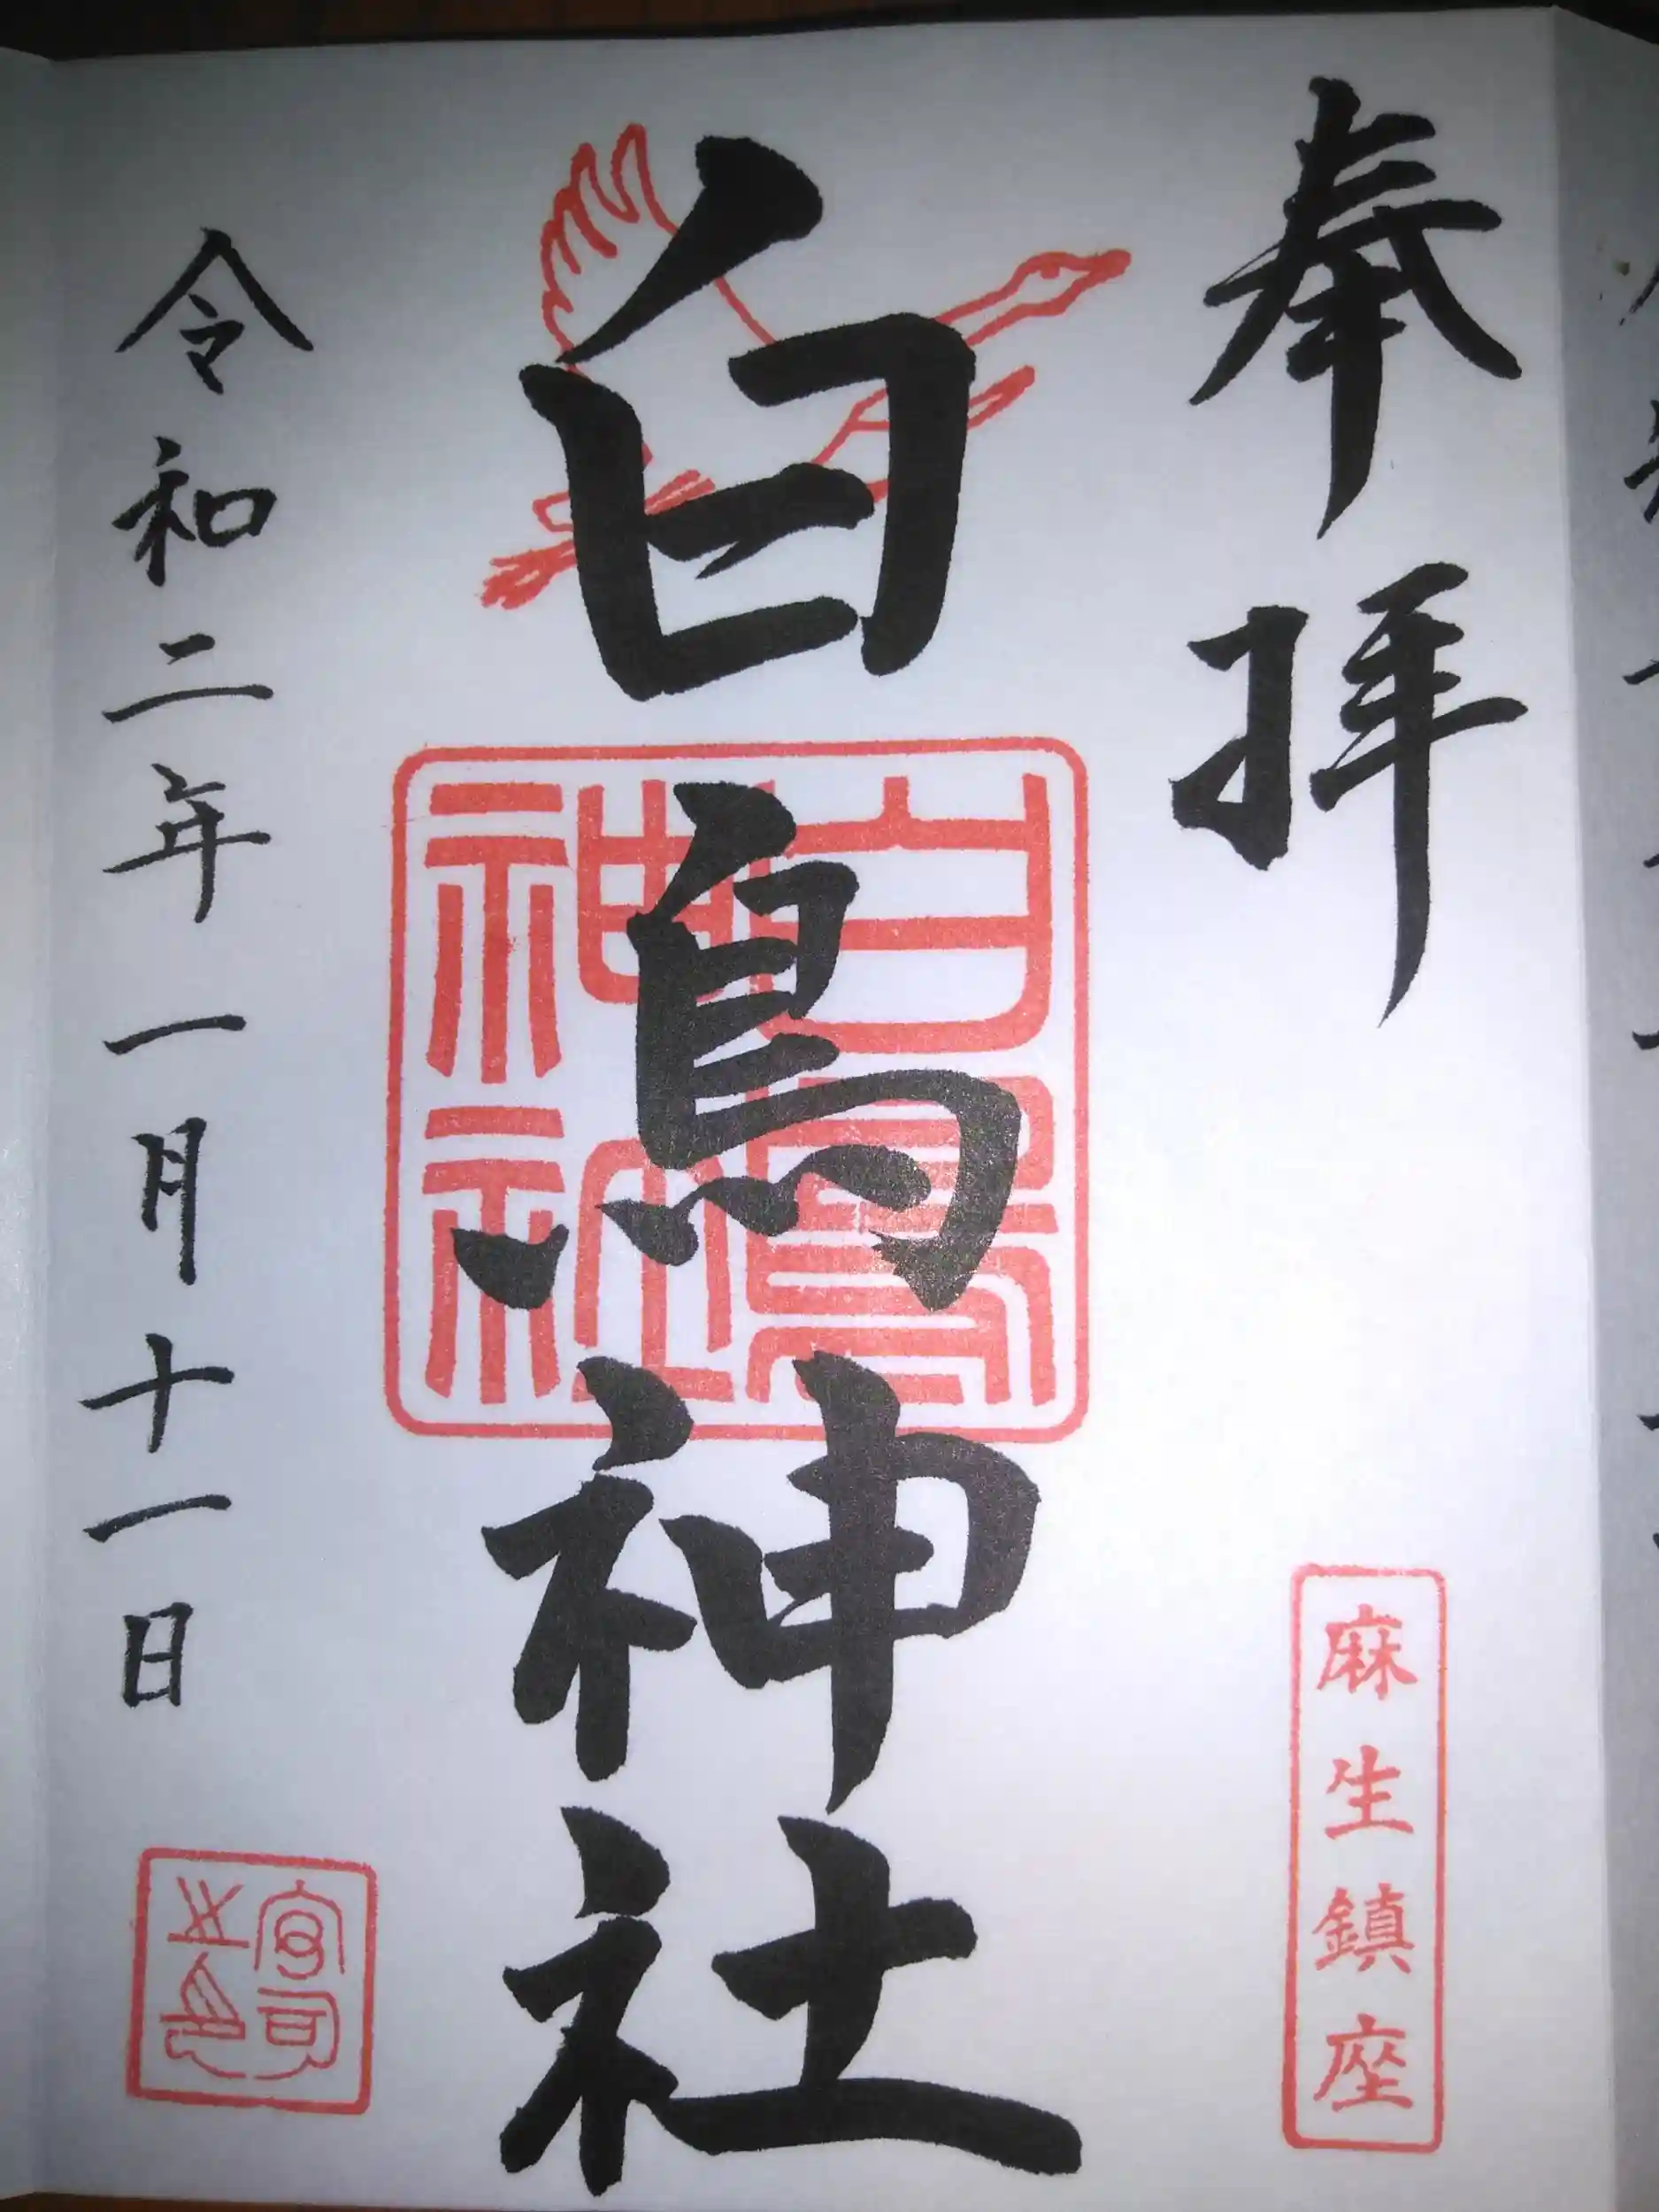 奉拝
麻生鎮座
白鳥神社
白鳥神社
令和二年一月十一日
宮司之印